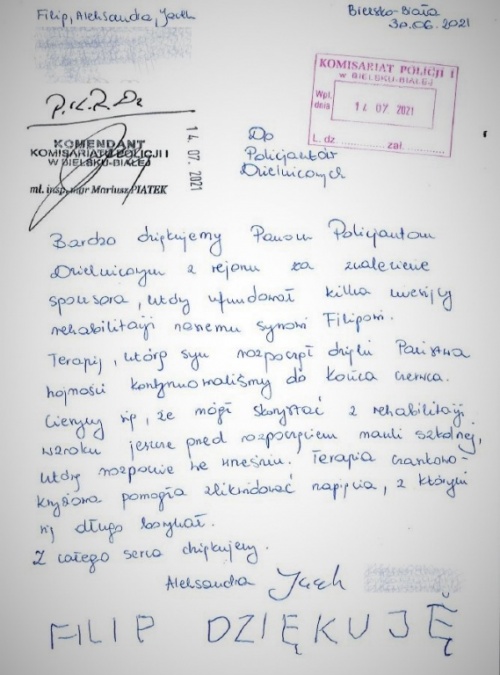 Filip, Aleksandra, Jacek
Bielsko-Biała
30.06.2021
KOMISARIAT POLICJI I
W BIELSKU-BIAŁEJ
Wpł. dnia
14 07. 2021
L. dz. zał.
KOMENDANT
KOMISARIATU POLICJI I
W BIELSKU-BIAŁEJ
mł. insp. mgr Mariusz PIĄTEK
14. 07. 2021
Do
Policjantów
Dzielnicowych
Bardzo dziękujemy Panom Policjantom
Dzielnicowym z rejonu za znalezienie
sponsora, który ufundował kilka miesięcy
rehabilitacji naszemu synowi Filipowi.
Terapię, którą syn rozpoczął dzięki Państwa
hojności kontynuowaliśmy do końca czerwca.
Cieszymy się, że mógł skorzystać z rehabilitacji
wzroku jeszcze przed rozpoczęciem nauki szkolnej,
którą rozpocznie we wrześniu. Terapia czaszkowo-
krzyżowa pomogła zlikwidować napięcia, z którymi
się długo borykał.
Z całego serca dziękujemy.
Aleksandra Jacek
FILIP DZIĘKUJĘ